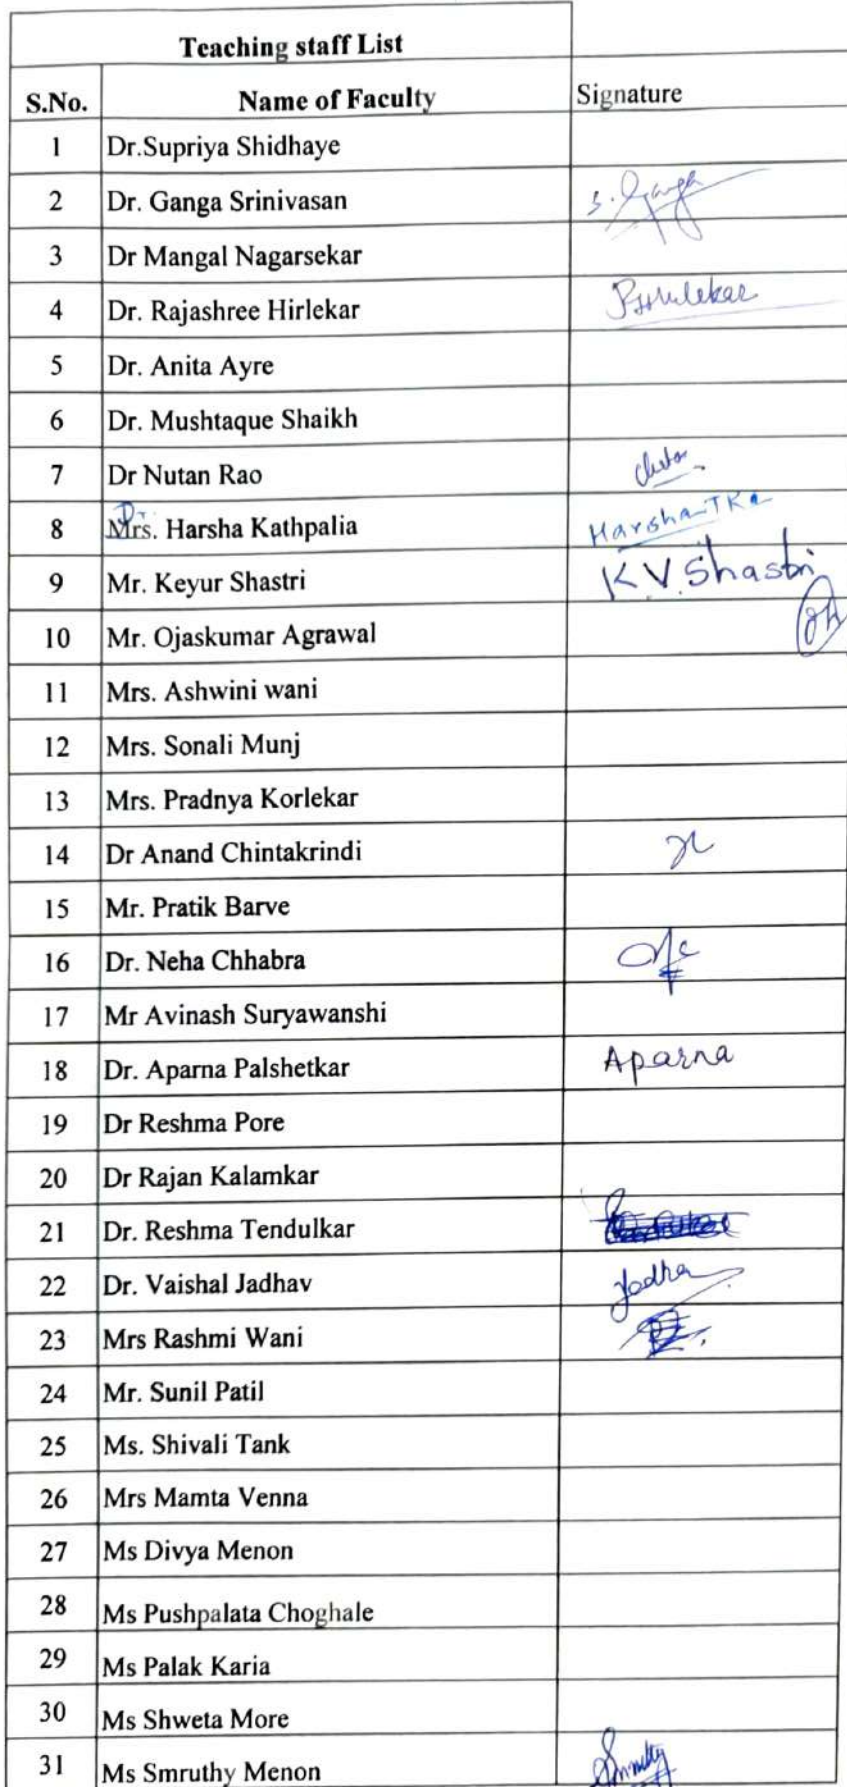 Teaching staff List
S.No. Name of Faculty Signature
1 Dr.Supriya Shidhaye
2 Dr. Ganga Srinivasan S. Ganga
3 Dr Mangal Nagarsekar
4 Dr. Rajashree Hirlekar
5 Dr. Anita Ayre
6 Dr. Mushtaque Shaikh
7 Dr Nutan Rao
Dr.
8 Mrs. Harsha Kathpalia
9 Mr. Keyur Shastri K.V.Shastri
10 Mr. Ojaskumar Agrawal
11 Mrs. Ashwini wani
12 Mrs. Sonali Munj
13 Mrs. Pradnya Korlekar
14 Dr Anand Chintakrindi
15 Mr. Pratik Barve
16 Dr. Neha Chhabra
17 Mr Avinash Suryawanshi
18 Dr. Aparna Palshetkar Aparna
19 Dr Reshma Pore
20 Dr Rajan Kalamkar
21 Dr. Reshma Tendulkar
22 Dr. Vaishal Jadhav
23 Mrs Rashmi Wani
24 Mr. Sunil Patil
25 Ms. Shivali Tank
26 Mrs Mamta Venna
27 Ms Divya Menon
28 Ms Pushpalata Choghale
29 Ms Palak Karia
30 Ms Shweta More
31 Ms Smruthy Menon